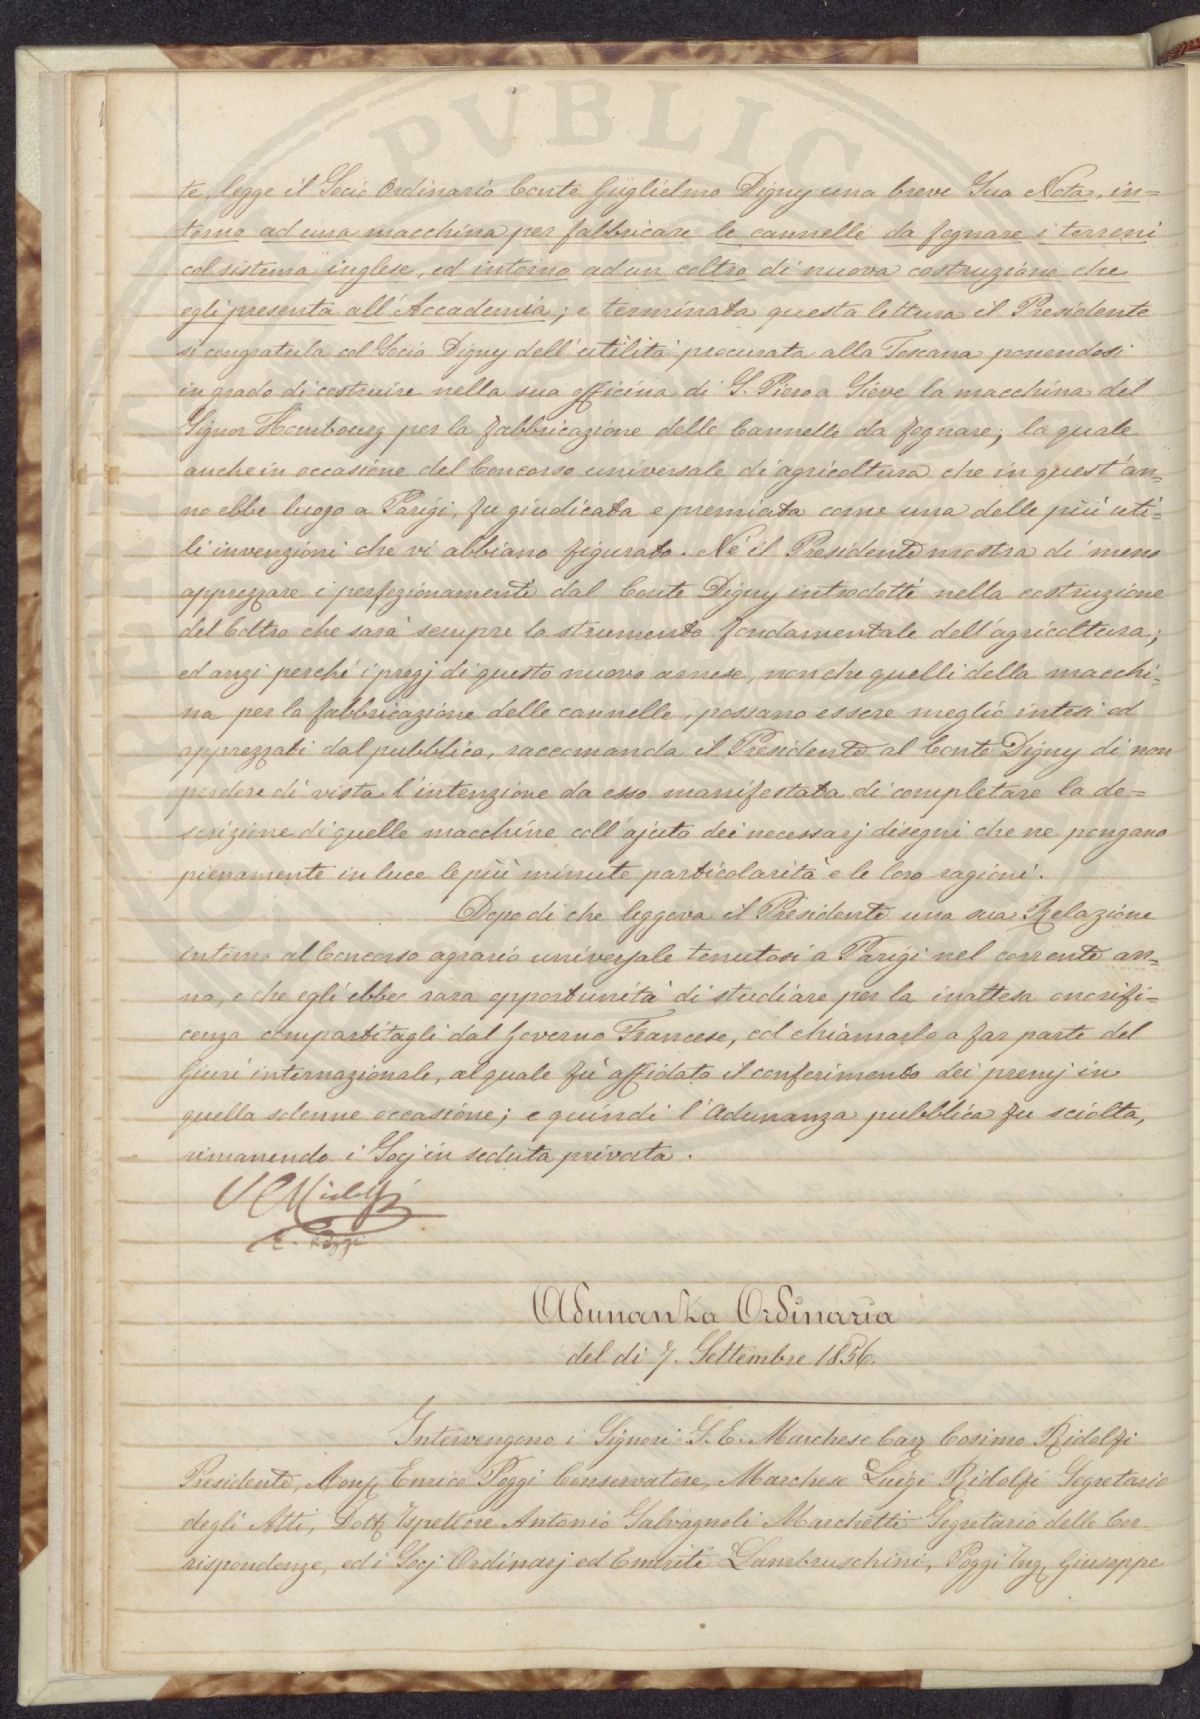 PVBLIC
te, legge il Socio Ordinario Conte Guglielmo Digny una breve Sua Nota, in=
torno ad una macchina per fabbricare le cannelle da fognare i terreni
col sistema inglese, ed intorno ad un coltro di nuova costruzione che
egli presenta all'Accademia; e terminata questa lettura il Presidente
si congratula col Socio Digny dell'utilità procurata alla Toscana ponendosi
in grado di costruire nella sua officina di S. Piero a Sieve la macchina del
Signor Hambourg per la fabbricazione delle Cannelle da fognare; la quale
anche in occasione del Concorso universale di agricoltura che in quest'an=
no ebbe luogo a Parigi, fu giudicata e premiata come una delle più uti=
li invenzioni che vi abbiano figurato. Nè il Presidente mostra di meno
apprezzare i perfezionamenti dal Conte Digny introdotti nella costruzione
del Coltro che sarà sempre lo strumento fondamentale dell'agricoltura;
ed anzi perchè i pregj di questo nuovo arnese, non che quelli della macchi=
na per la fabbricazione delle cannelle, possano essere meglio intesi ed
apprezzati dal pubblico, raccomanda il Presidente al Conte Digny di non
perdere di vista l'intenzione da esso manifestata di completare la de=
scrizione di quelle macchine coll'ajuto dei necessarj disegni che ne pongano
pienamente in luce le più minute particolarità e le loro ragioni.
Dopo di che leggeva il Presidente una sua Relazione
intorno al Concorso agrario universale tenutosi a Parigi nel corrente an=
no, e che egli ebbe rara opportunità di studiare per la inattesa onorifi=
cenza compartitagli dal Governo Francese, col chiamarlo a far parte del
Giurì internazionale, al quale fù affidato il conferimento dei premj in
quella solenne occasione; e quindi l'Adunanza pubblica fu sciolta,
rimanendo i Socj in seduta privata.
Ridolfi
E. Poggi
Adunanza Ordinaria
del dì 7. Settembre 1856.
Intervengono i Signori S. E. Marchese Cav Cosimo Ridolfi
Presidente, Enrico Poggi Conservatore, Marchese Luigi Ridolfi Segretario
degli Atti, Dott Ispettore Antonio Salvagnoli Marchetti Segretario delle Cor=
rispondenze, ed i Socj Ordinarj ed Emeriti Lambruschini, Poggi Ing Giuseppe